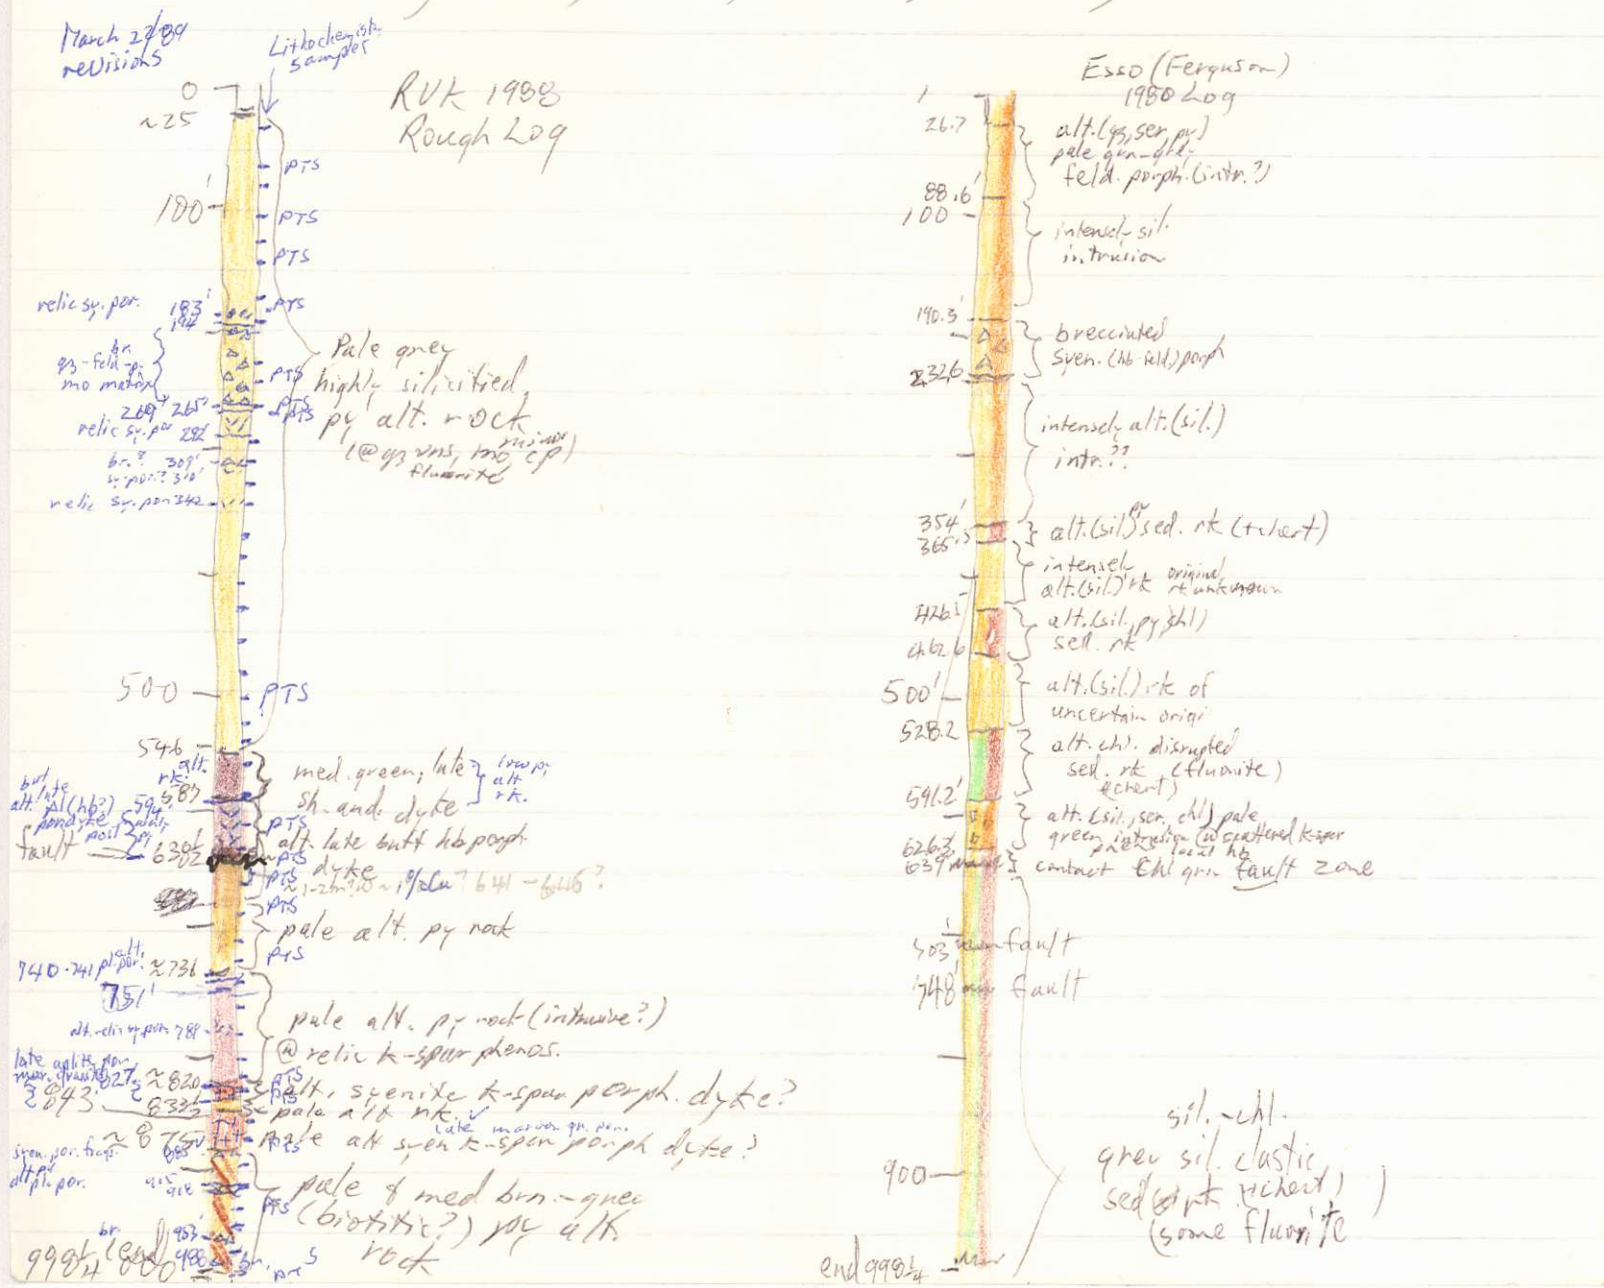 March 27/89
revisions
Lithochemistry
samples
RVK 1988
Rough Log
0
~25
100'
PTS
PTS
PTS
PTS
relic sy. por.
183'
194
br.
qz-feld-py
mo matrix
PTS
PTS
PTS
269' 265'
relic sy. por 292
br.? 309'
sy. por.? 310'
relic sy. por 342
Pale grey
highly silicified,
py alt. rock
(@ qz vns, mo, minor cp)
fluorite
500
PTS
546
alt.
rk.
587
med. green, late
sh. and. dyke
low py
alt
rk.
buf
alt. late
pl (hb?) 594
por dyke
post
PTS
alt. late buff hb porph.
dyke
fault
630
PTS
PTS
~1-2m? @ ~1% Cu? 641-646?
PTS
pale alt. py rock
PTS
740-741 alt. pl. por.
~736
751'
alt. relic sy por 789
pale alt. py rock (intrusive?)
@ relic k-spar phenos.
late aplite por.
827
~820
PTS
PTS
alt. syenite k-spar porph. dyke?
843
833½
pale alt rk.
late maroon qz. por.
~875
pale alt syen k-spar porph dyke?
PTS
syen. por. frags.
885
alt py
pl. por.
915
918
PTS
pale & med brn-grey
(biotitic?) py alt.
rock
br.
953'
988
br.
PTS
998¼ (end)
Esso (Ferguson)
1980 Log
1
26.7
alt. (qz, ser, py)
pale grn-grey
feld. porph. (intr.?)
88.6'
100
intensely sil.
intrusion
190.3'
brecciated
syen. (hb-feld) porph
232.6
intensely alt. (sil.)
intr.??
354'
365.5
alt. (sil) py sed. rk (+chert)
intensely
alt. (sil.) rk original
rk unknown
426.5
alt. (sil., py, chl)
sed. rk
462.6
500'
alt. (sil.) rk of
uncertain origi
528.2
alt. chl. disrupted
sed. rk (fluorite)
(chert)
591.2'
alt. (sil., ser, chl) pale
green intrusion @ scattered k-spar
phenos local hb
626.3
639
contact Chl grn fault zone
703'
fault
748'
fault
900
sil.-chl.
grey sil. clastic
sed rk (+chert)
(some fluorite
end 998¼